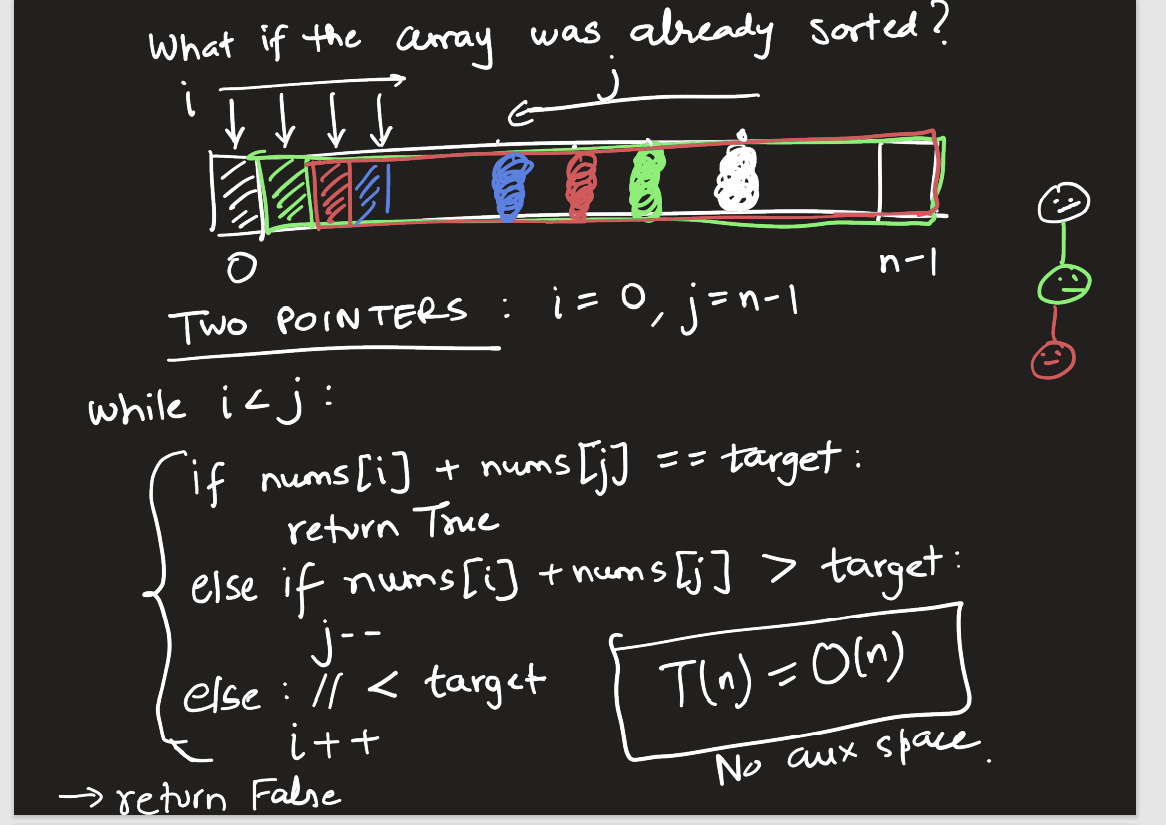 What if the array was already sorted?
i
j
0
n-1
TWO POINTERS : i = 0, j = n-1
while i < j :
if nums[i] + nums[j] == target :
return True
else if nums[i] + nums[j] > target :
j--
else : // < target
i++
T(n) = O(n)
No aux space.
→ return False